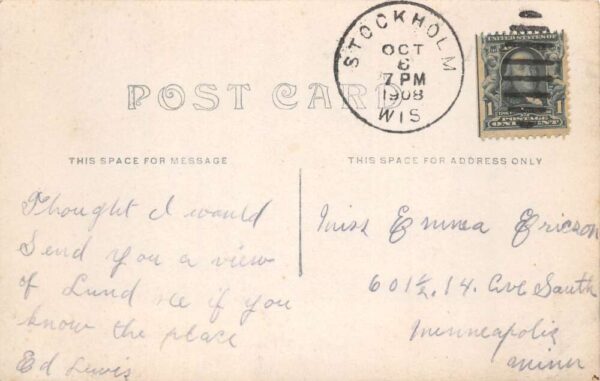 STOCKHOLM
OCT
6
7 PM
1908
WIS
UNITED STATES OF
1 POSTAGE 1
ONE CENT
POST CARD
THIS SPACE FOR MESSAGE
THIS SPACE FOR ADDRESS ONLY
Thought I would
Send you a view
of Lund se if you
know the place
Ed Lewis
Miss Emma Ericson
601½. 14. Ave South
Minneapolis
Minn